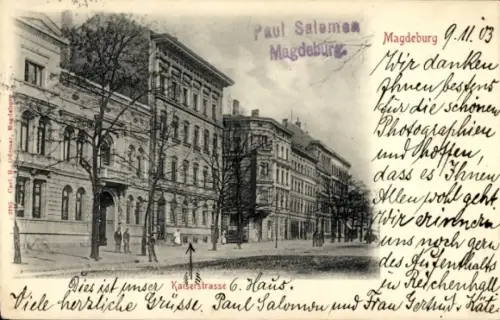 Paul Salomon
Magdeburg.
Magdeburg
9.11.03
Wir danken
Ihnen bestens
für die schönen
Photographien
und hoffen,
dass es Ihnen
Allen wohl geht.
Wir erinnern
uns noch gern
des Aufenthalts
in Reichenhall
Kaiserstrasse
Dies ist unser 6. Haus.
Viele herzliche Grüsse. Paul Salomon und Frau Gertrud + Käte.